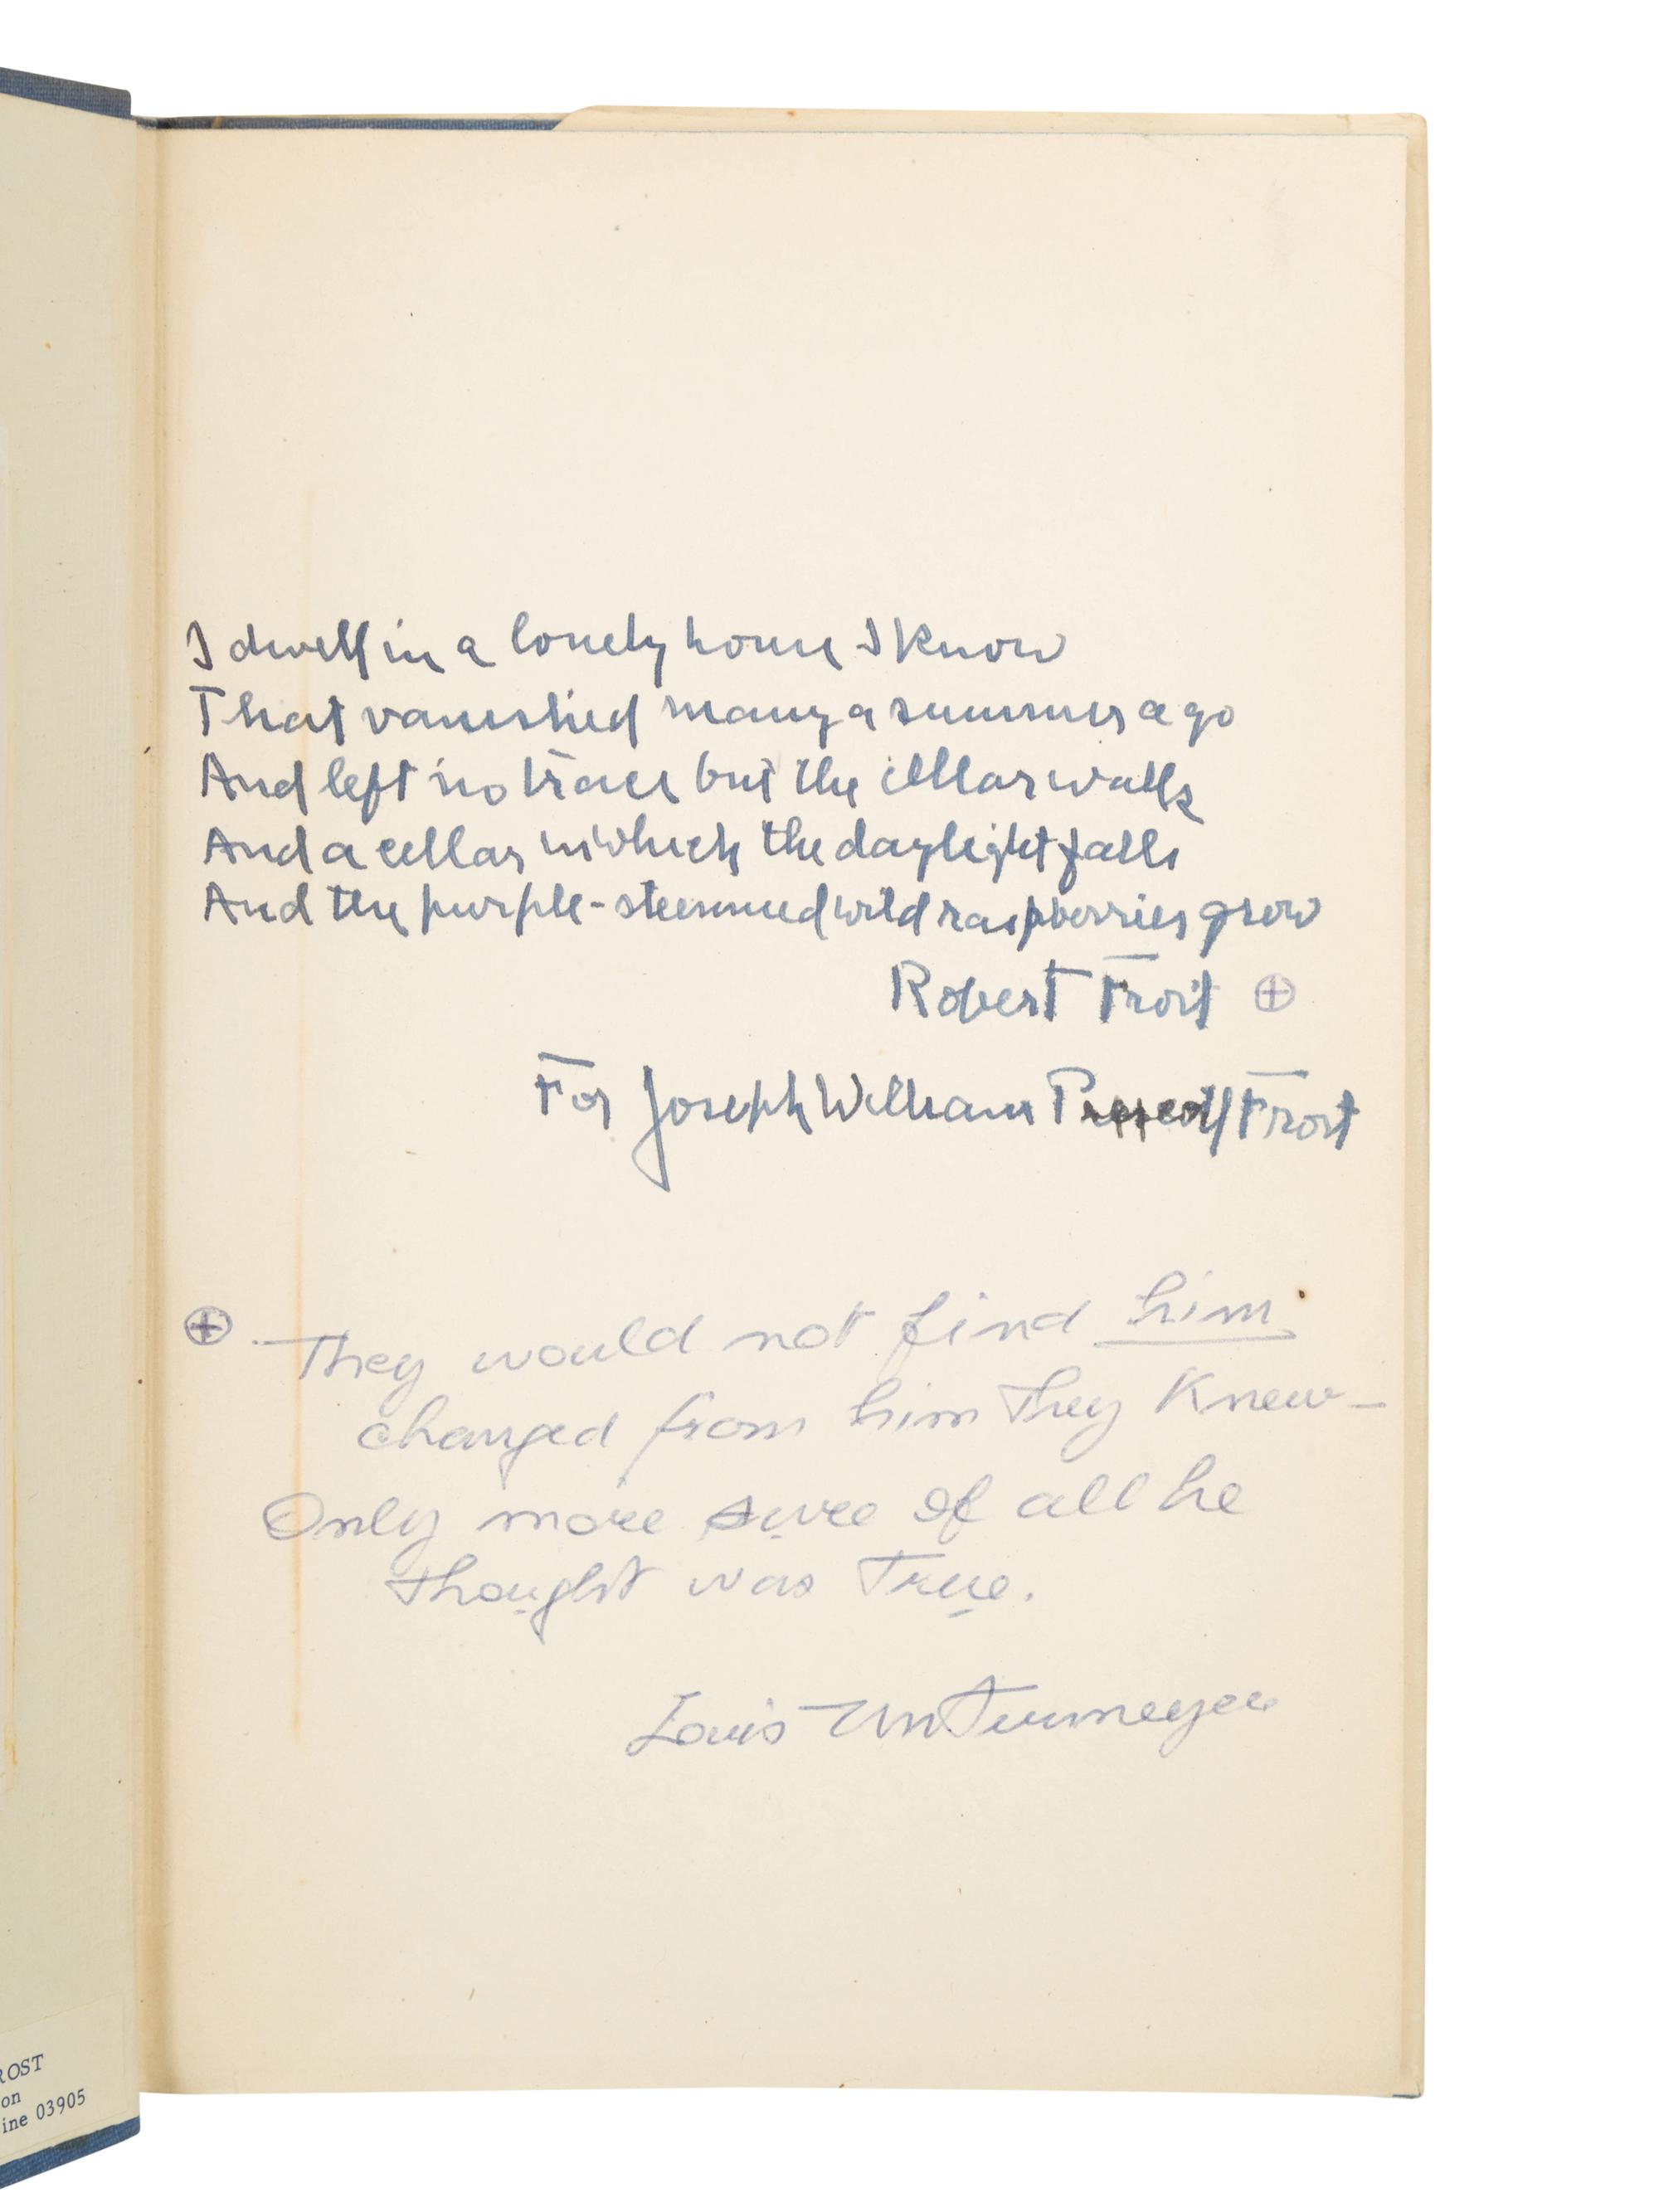 I dwell in a lonely house I know
That vanished many a summer ago
And left no trace but the cellar walls
And a cellar in which the daylight falls
And the purple-stemmed wild raspberries grow
Robert Frost ⊕
For Joseph William Frost
⊕ They would not find him
changed from him they knew—
Only more sure of all he
thought was true.
Louis Untermeyer
ROST
on
ine 03905